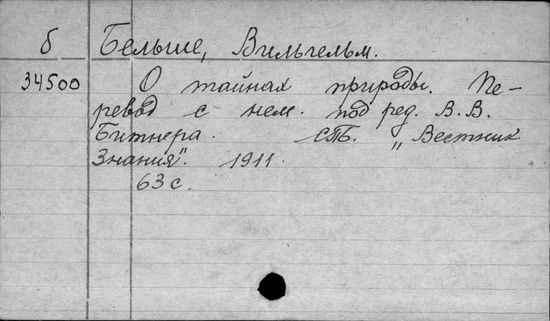 б Бельше, Вильгельм.
34500 О тайнах природы. Пе-
ревод с нем. под ред. В.В.
Битнера. СПБ. „Вестник
Знания". 1911.
63 с.